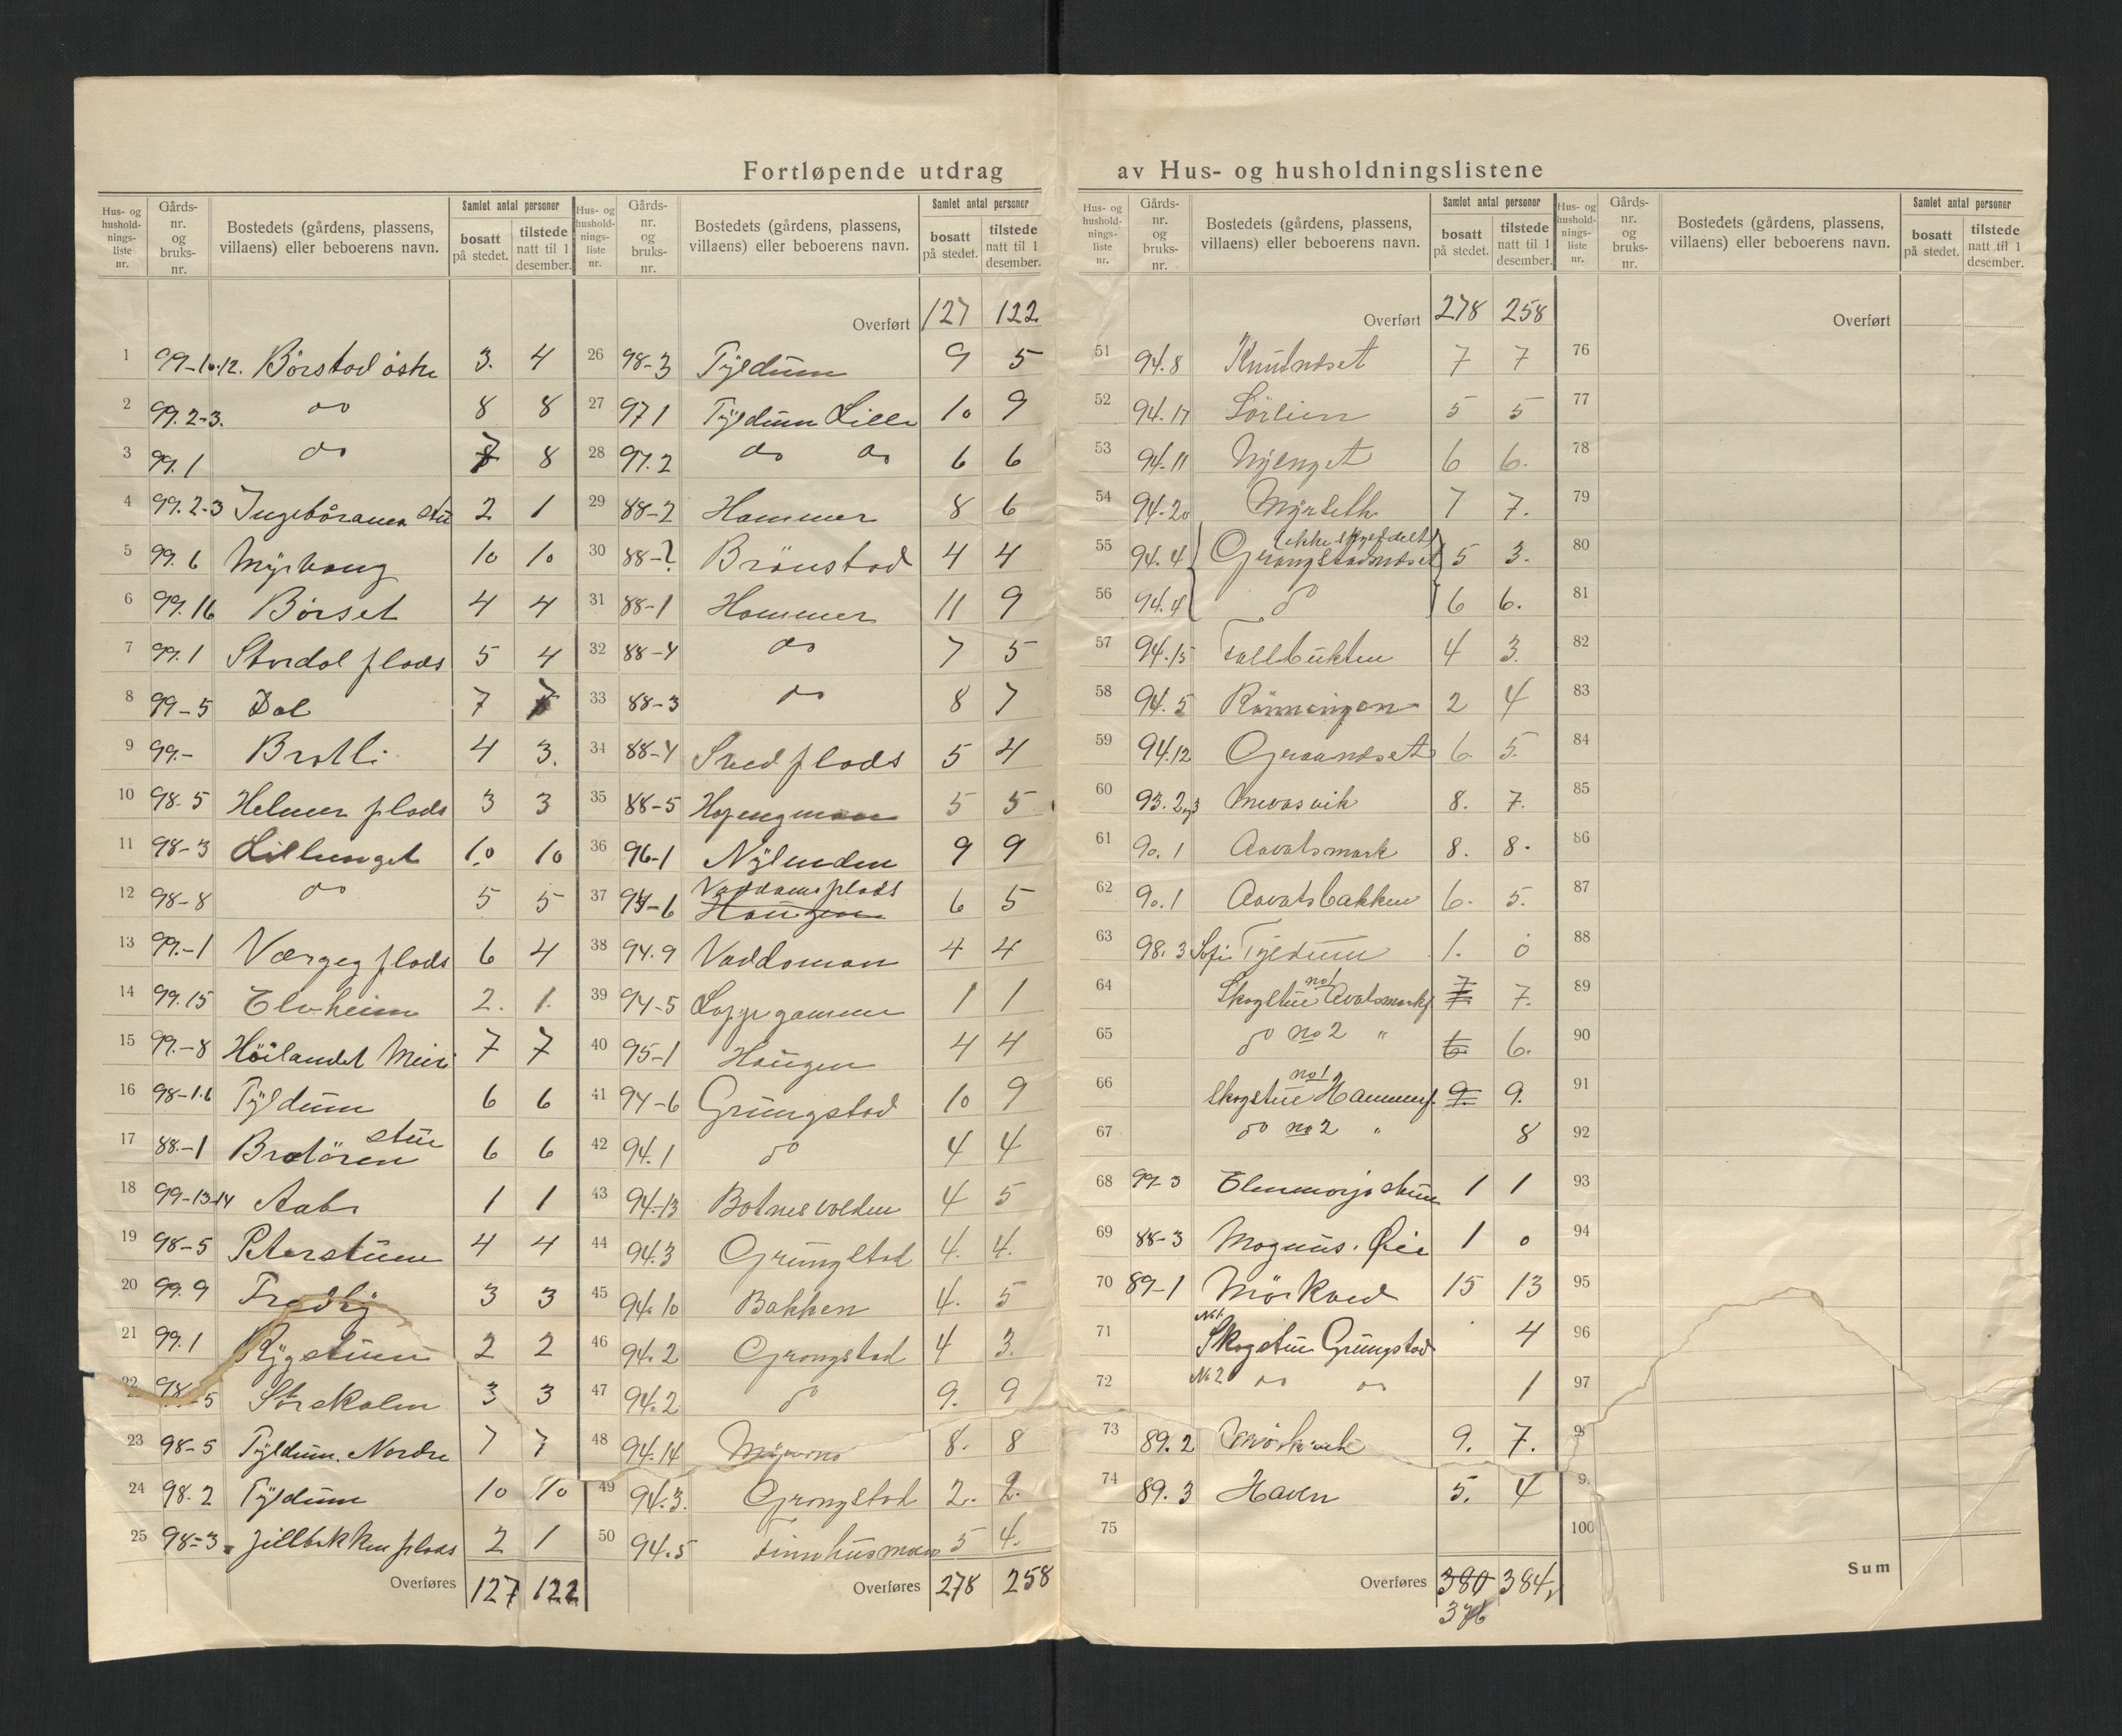 Fortløpende utdrag av Hus- og husholdningslistene
Hus- og hushold-nings-liste nr. | Gårds-nr. og bruks-nr. | Bostedets (gårdens, plassens, villaens) eller beboerens navn. | Samlet antal personer | bosatt på stedet. | tilstede natt til 1 desember.
1 99-10.12. Börstad östre 3. 4
2 99.2-3. do 8 8
3 99.1 do 8
4 99.2-3 2 1
5 99.6 Myrhaug 10 10
6 99.16 Börset 4 4
7 99.1 Stordal plads 5 4
8 99-5 Dal 7 7
9 99.- Brotli 4 3.
10 98.5 Helmer plads 3 3
11 98-3 Lillunget 10 10
12 98-8 do 5 5
13 99.-1 plads 6 4
14 99.15 Elvheim 2. 1.
15 99.-8 Höilandet 7 7
16 98-1.6 Tyldum 6 6
17 88.-1 Bratören stue 6 6
18 99-13-14 1 1
19 98-5 Peterstuen 4 4
20 99.9 Fredly 3 3
21 99.1 Rygstuen 2 2
22 98-5 3 3
23 98-5 Tyldum. Nordre 7 7
24 98.2 Tyldum 10 10
25 98-3. plads 2 1
Overføres 127 122
Hus- og hushold-nings-liste nr. | Gårds-nr. og bruks-nr. | Bostedets (gårdens, plassens, villaens) eller beboerens navn. | Samlet antal personer | bosatt på stedet. | tilstede natt til 1 desember.
Overført 127 122
26 98-3 Tyldum 9 5
27 97.1 Tyldum Lille 10 9
28 97.2 do do 6 6
29 88-2 Hammer 8 6
30 88-? Brönstad 4 4
31 88-1 Hammer 11 9
32 88-4 do 7 5
33 88-3 do 8 7
34 88-4 plads 5 4
35 88-5 5 5
36 96-1 Nylenden 9 9
37 94-6 plads Haugen 6 5
38 94.9 Vaddoman 4 4
39 94-5 1 1
40 95-1 Haugen 4 4
41 94-6 Grungstad 10 9
42 94.1 do 4 4
43 94.-13 Botnesvolden 4 5
44 94.3 Grungstad 4. 4.
45 94.10 Bakken 4. 5
46 94.2 Grongstad 4 3.
47 94.2 do 9. 9
48 94.14 8. 8
49 94.3. Grongstad 2. 2.
50 94.5 5 4.
Overføres 278 258
Hus- og hushold-nings-liste nr. | Gårds-nr. og bruks-nr. | Bostedets (gårdens, plassens, villaens) eller beboerens navn. | Samlet antal personer | bosatt på stedet. | tilstede natt til 1 desember.
Overført 278 258
51 94.8 Knutnæset 7 7
52 94.17 Sörlien 5 5
53 94.11 Nyenget 6 6.
54 94.20 Myrseth 7 7.
55 94.4 Grongstadnæset 5 3.
56 94.4 do 6 6.
57 94.15 4 3.
58 94.5 Rönningen 2 4
59 94.12 Graanæset 6. 5.
60 93.2og3 8. 7.
61 90.1 Aavatsmark 8. 8.
62 90.1 Aavatsbakken 6. 5.
63 98.3 Sofie Tyldum 1. 0
64 Skogstue no1 Avatsmark 7 7.
65 do no 2 " 6. 6.
66 Skogstue no1 Hammer 9. 9.
67 do no 2 " 8
68 99-3 1 1
69 88-3 Magnus. Øie 1 0
70 89-1 Mörkved 15 13
71 No1 Skogstue Grungstad 4
72 No 2 do do 1
73 89.2 9. 7.
74 89.3 Haven 5. 4
75
Overføres 380 384,
376
Hus- og hushold-nings-liste nr. | Gårds-nr. og bruks-nr. | Bostedets (gårdens, plassens, villaens) eller beboerens navn. | Samlet antal personer | bosatt på stedet. | tilstede natt til 1 desember.
Overført
76
77
78
79
80
81
82
83
84
85
86
87
88
89
90
91
92
93
94
95
96
97
100
Sum